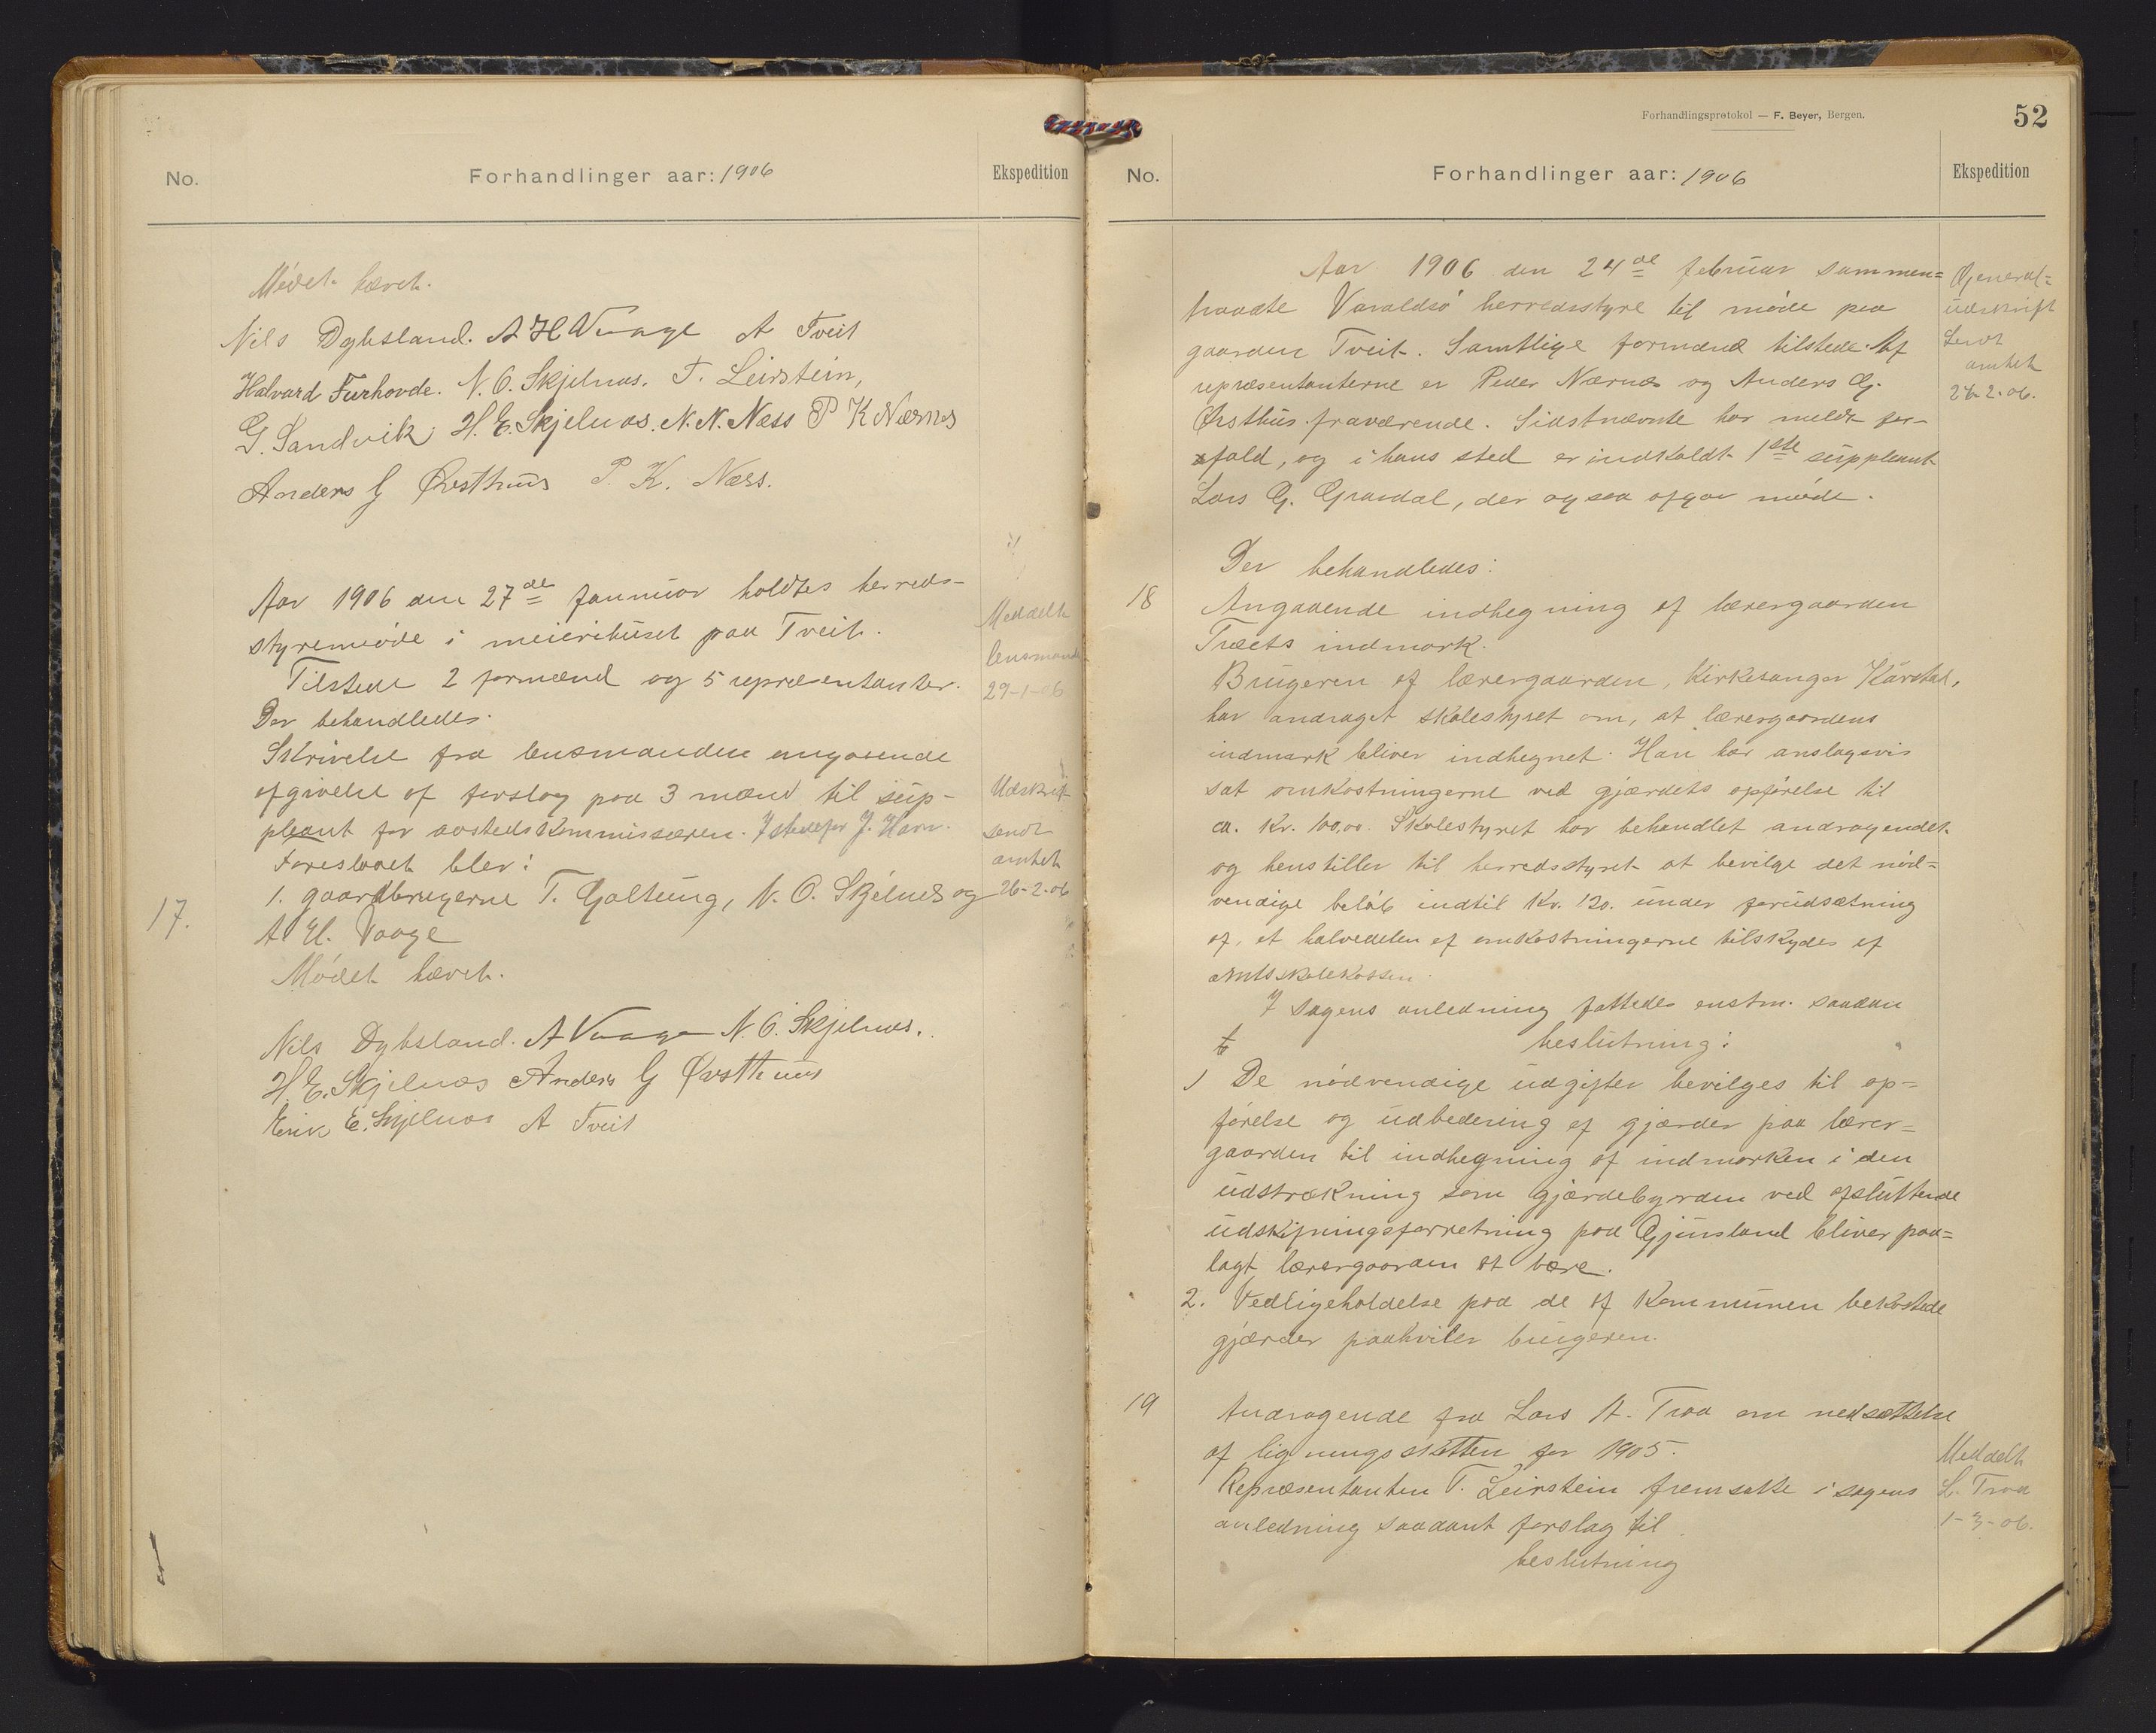 No.
Forhandlinger aar: 1906
Ekspedition
Mødet hævet.
Nils Dybsland. A H Vaage A Tveit
Halvard Furhovde. N. O. Skjelnæs. T. Leirstein,
G. Sandvik, H. E. Skjelnæs. N. N. Næss P K Nærnes
Anders G Øvsthuus P. K. Næss.
Aar 1906 den 27de januar holdtes herreds-
styremøde i meierihuset paa Tveit.
Tilstede 2 formænd og 5 repræsentanter.
Der behandledes.
Skrivelse fra lensmanden angaaende
afgivelse af forslag paa 3 mænd til sup-
pleant for aastedskommissæren. Istedefor J. Ham.
Foreslaaet blev:
17.
1. gaardbrugerne T. Galtung, N. O. Skjelnes og
A H. Vaage
Mødet hævet.
Meddelt
lensmand
29-1-06
Udskrift
sendt
amtet
26-2-06
Nils Dybsland. A Vaage N. O. Skjelnæs.
H. E. Skjelnæs Anders G Øvsthuus
Erik E. Skjelnæs A Tveit
Forhandlingsprotokol — F. Beyer, Bergen.
52
No.
Forhandlinger aar: 1906
Ekspedition
Aar 1906 den 24de februar sammen=
traadte Varaldsø herredsstyre til møde paa
gaarden Tveit. Samtlige formænd tilstede. Af
repræsentanterne er Peder Nærnæs og Anders G.
Øvsthus fraværende. Sidstnævnte har meldt for-
fald, og i hans sted er indkaldt 1ste suppleant
Lars G. Gravdal, der ogsaa afgav møde.
General=
udskrift
Sendt
amtet
26-2-06.
Der behandledes:
18
Angaaende indhegning af lærergaarden
Træets indmark.
Brugeren af lærergaarden, kirkesanger Kårdal,
har andraget skolestyret om, at lærergaardens
indmark bliver indhegnet. Han har anslagsvis
sat omkostningerne ved gjærdets opførelse til
ca. kr. 100,00. Skolestyret har behandlet andragendet
og henstiller til herredsstyret at bevilge det nød=
vendige beløb indtil kr. 120. under forudsætning
af, at halvedelen af omkostningerne tilskydes af
amtsskolekassen.
I sagens anledning fattedes enstm. saadan
beslutning:
1 De nødvendige udgifter bevilges til op=
førelse og udbedering af gjærder paa lærer=
gaarden til indhegning af indmarken i den
udstrækning som gjærdebyrden ved afsluttende
udskiftningsforretning paa Gjuvsland bliver paa=
lagt lærergaarden at bære.
2. Vedligeholdelse paa de af kommunen bekostede
gjærder paahviler brugeren.
19
Andragende fra Lars A. Traa om nedsættelse
af ligningsskatten for 1905.
Repræsentanten T. Leirstein fremsatte i sagens
anledning saadant forslag til
beslutning
Meddelt
L. Traa
1-3-06.